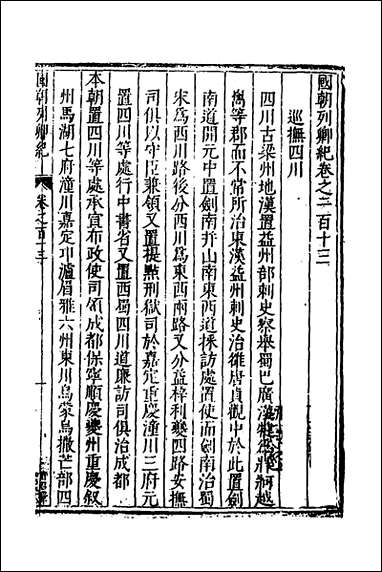 國朝列卿紀卷之一百十三
巡撫四川
四川古梁州地漢置益州部刺史察舉蜀巴廣漢犍爲牂牁越
嶲等郡而不常所治東漢益州刺史治雒唐貞觀中於此置劍
南道開元中置劍南幷山南東西道採訪處置使而劍南治蜀
宋爲西川路後分西川爲東西兩路又分益梓利夔四路安撫
司俱以守臣兼領又置提點刑獄司於嘉定重慶潼川三府元
置四川等處行中書省又置西蜀四川道廉訪司俱治成都
本朝置四川等處承宣布政使司領成都保寧順慶夔州重慶敘
州馬湖七府潼川嘉定卭瀘眉雅六州東川烏蒙烏撒芒部四
國朝列卿紀
卷之一百十三